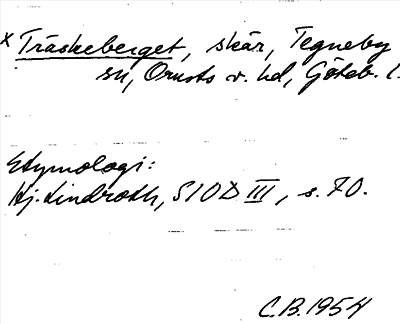 x Träskeberget, skär, Tegneby
sn, Orusts v. hd, Göteb. l.
Etymologi:
Hj. Lindroth, SIOD III, s. 70.
C.B. 1954